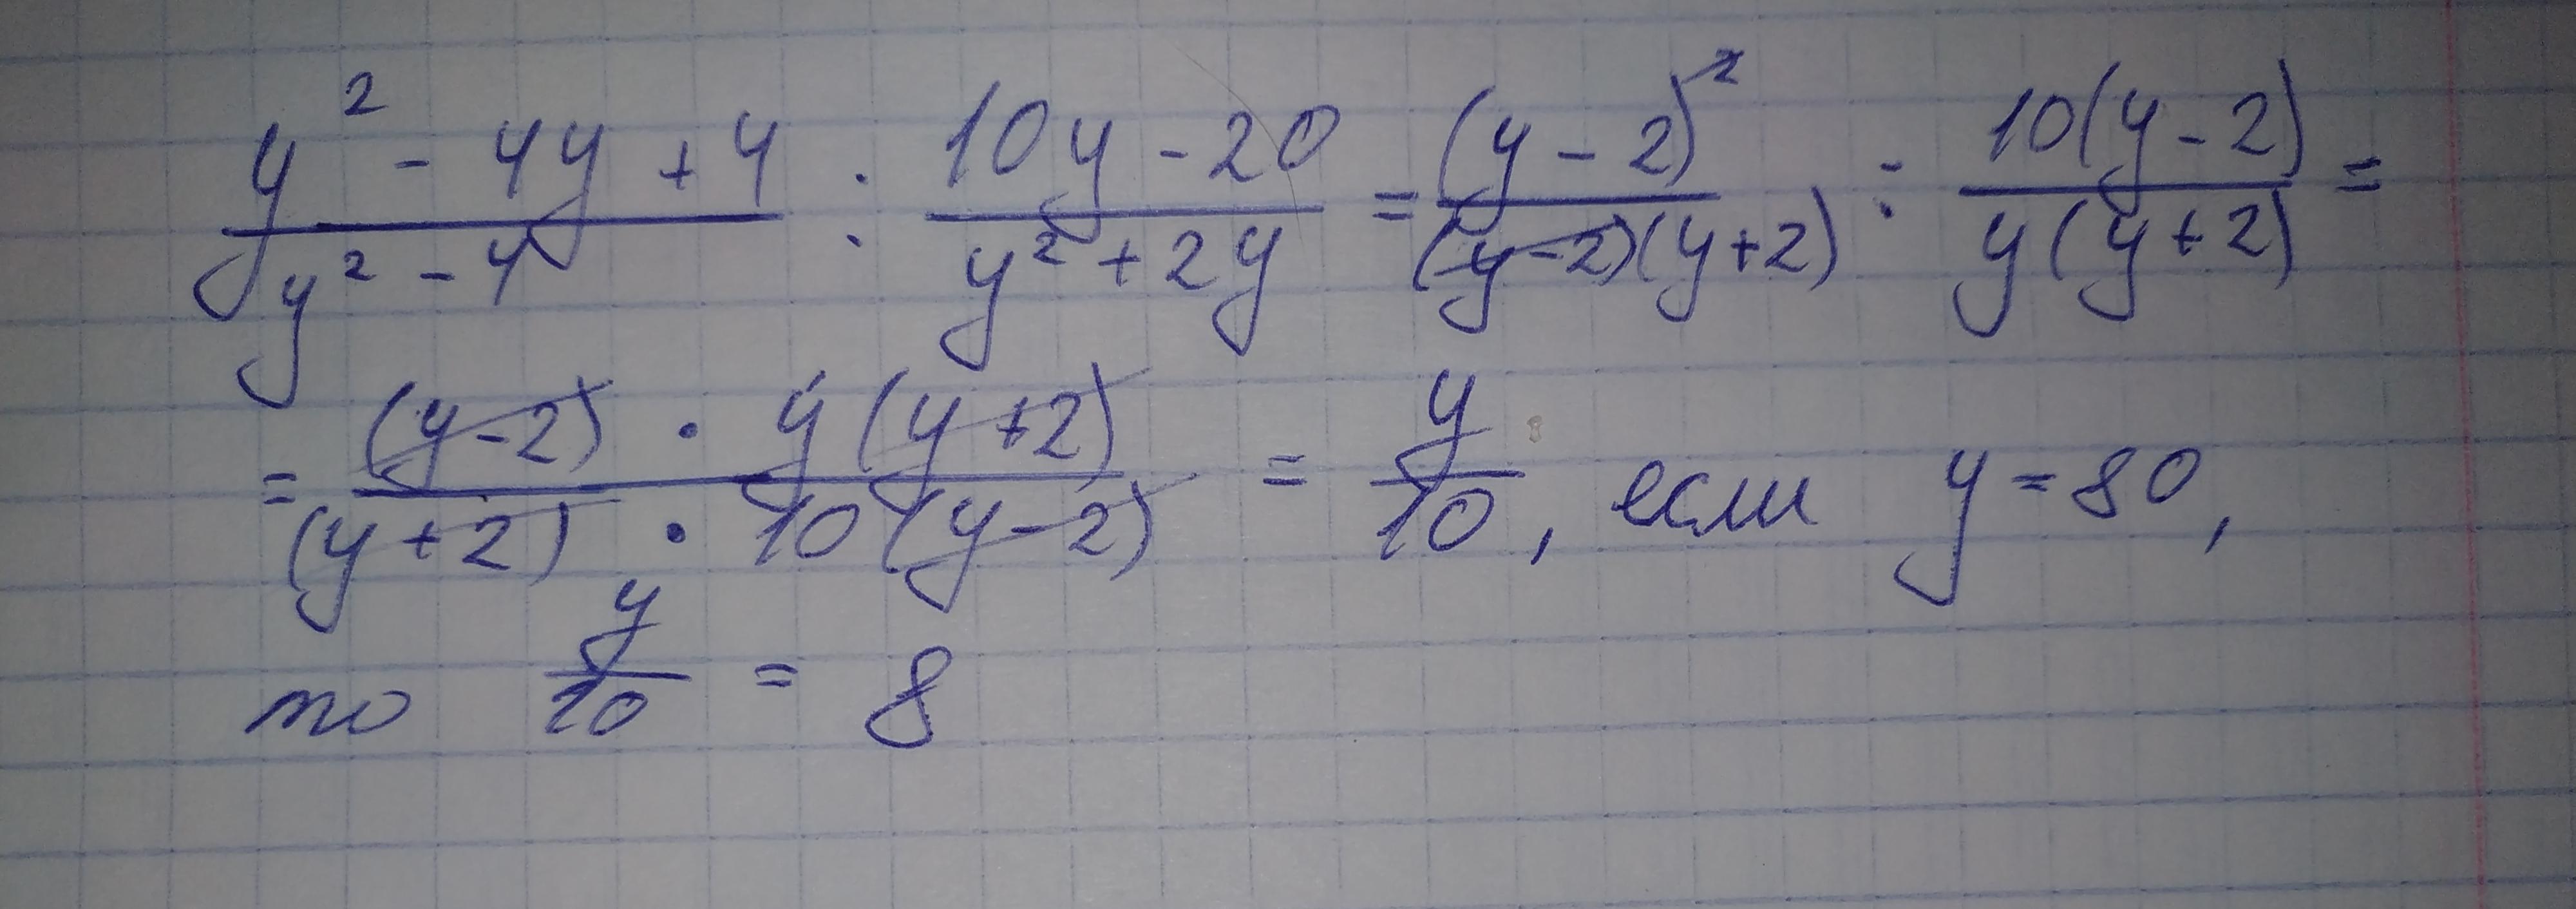 (y² - 4y + 4)/(y² - 4) : (10y - 20)/(y² + 2y) = (y - 2)²/((y-2)(y+2)) : 10(y - 2)/(y(y+2)) =
= ((y-2) · y(y+2))/((y+2) · 10(y-2)) = y/10, если y = 80,
то y/10 = 8